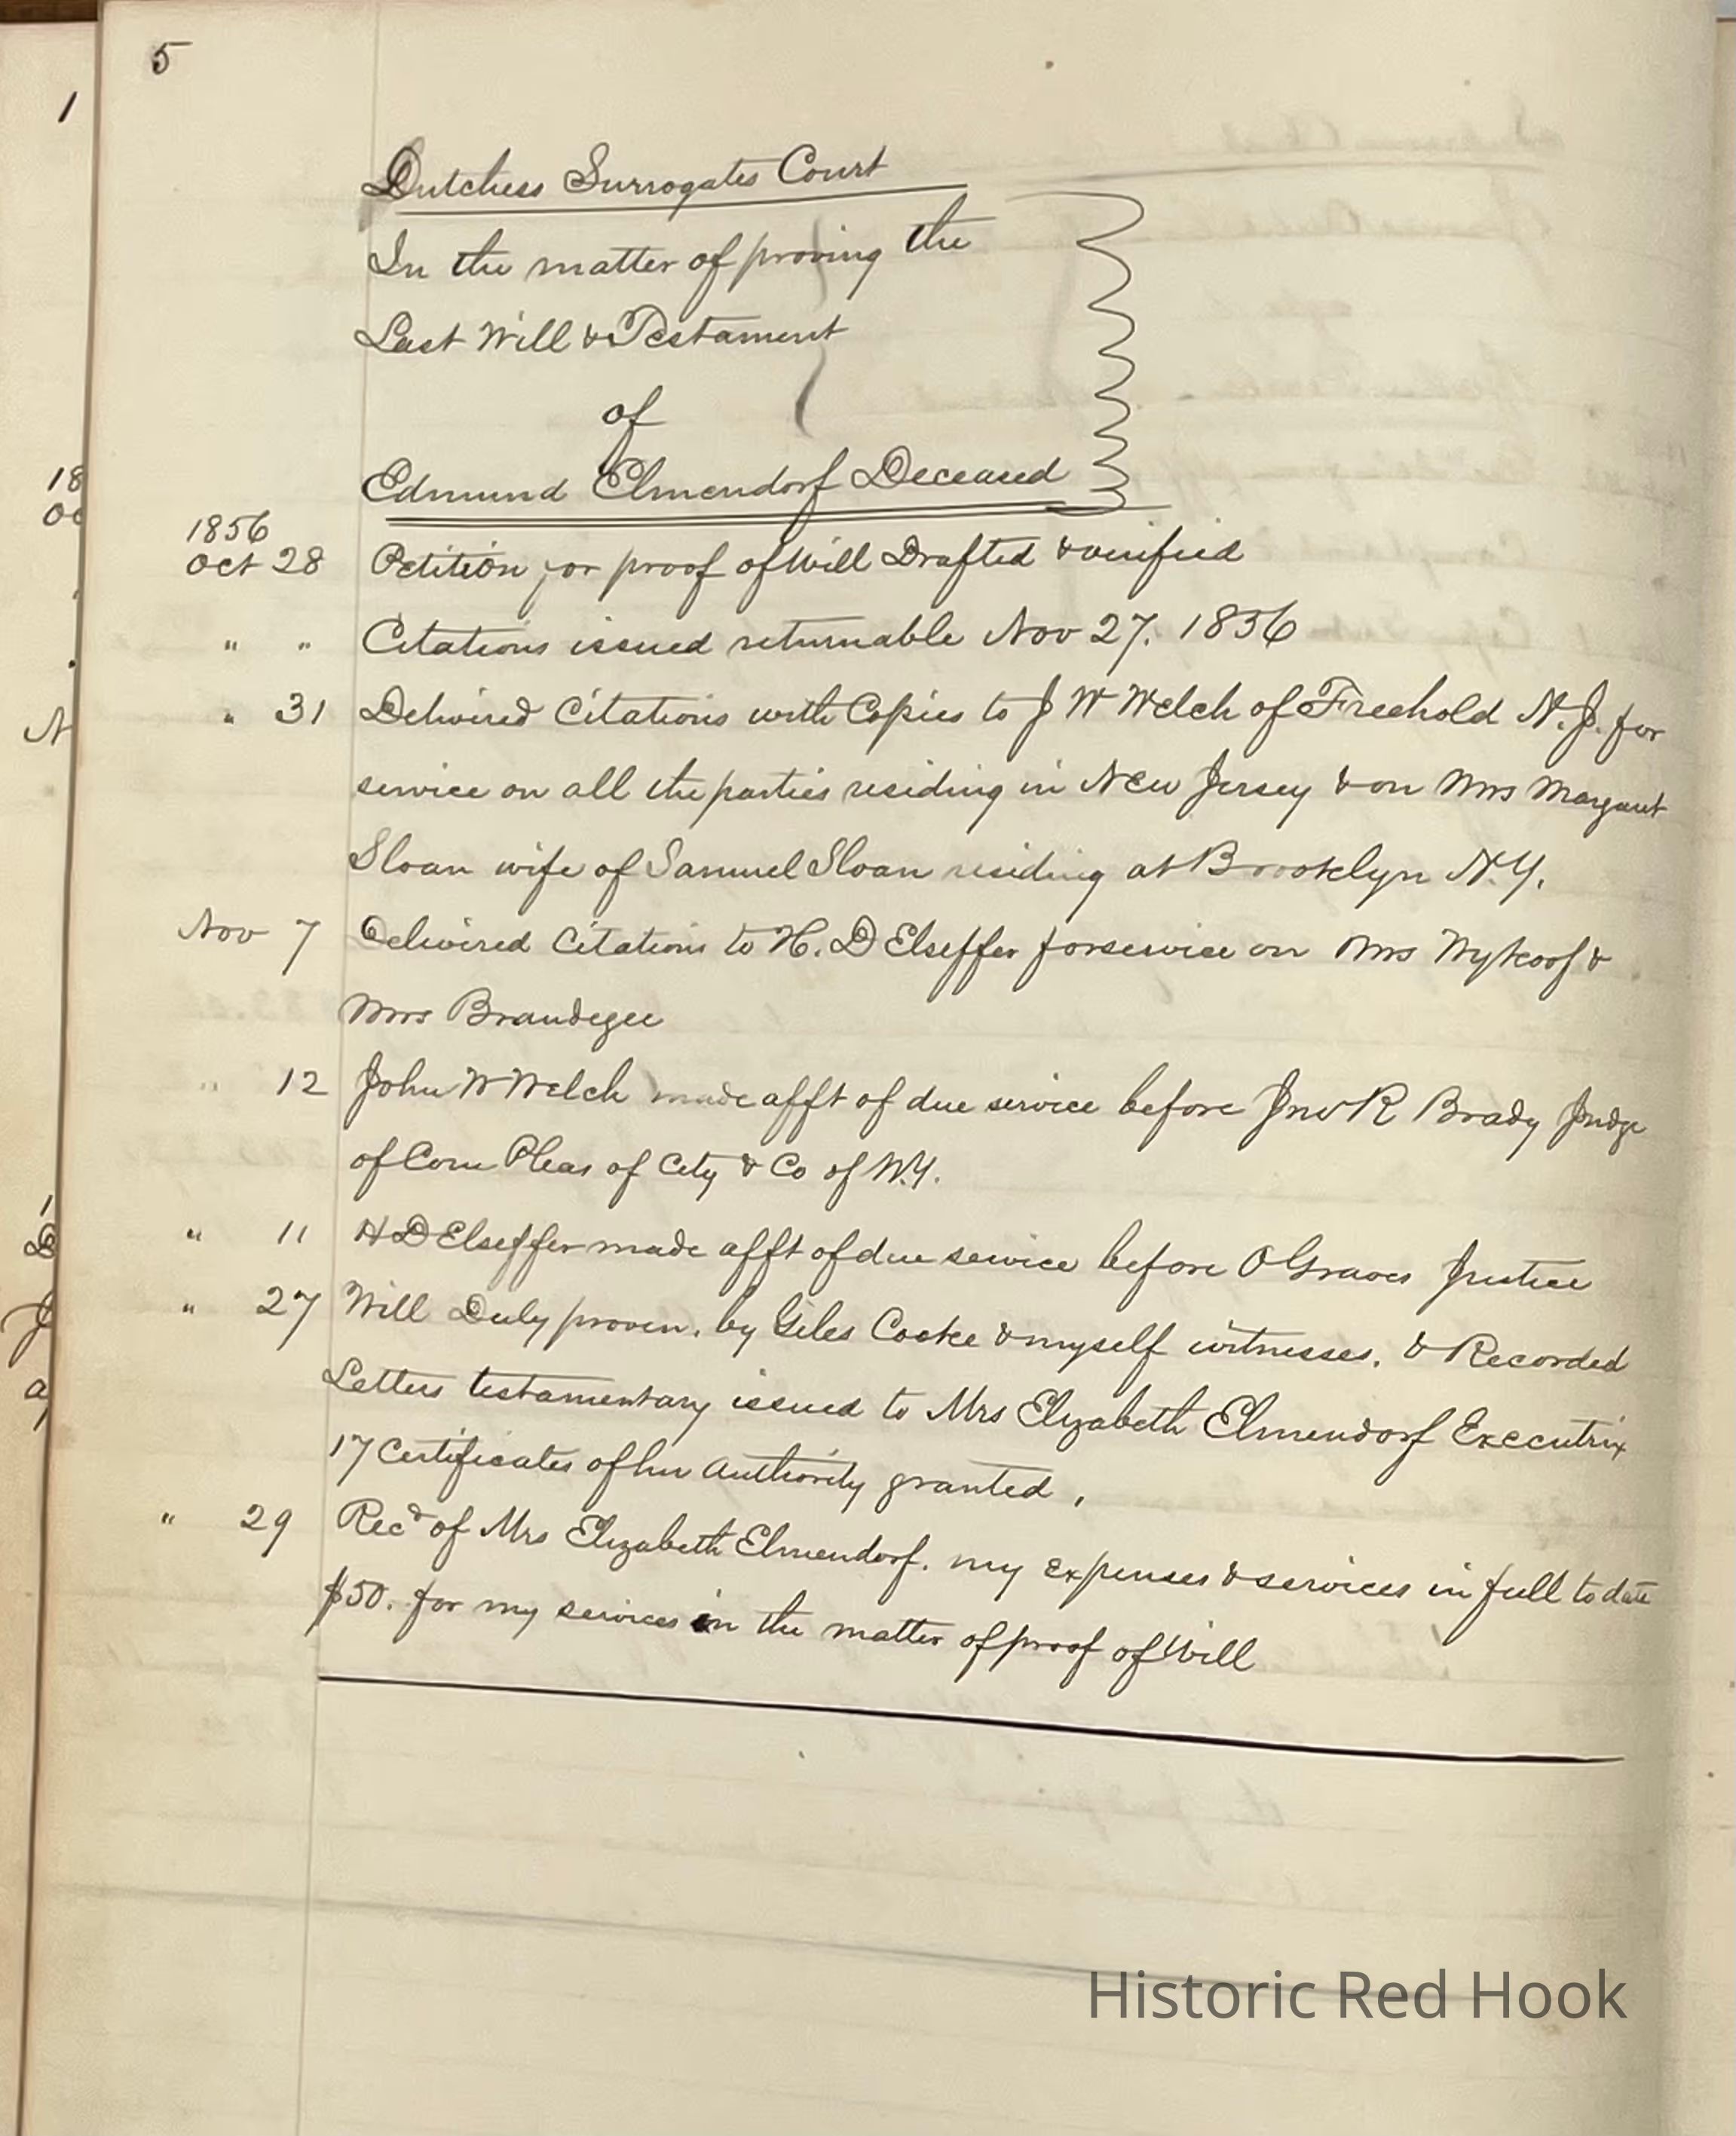 5
1
Dutchess Surrogates Court
In the matter of proving the
Last Will & Testament
of
Edmund Elmendorf Deceased
1856
Oct 28 Petition for proof of Will Drafted & verified
" " Citations issued returnable Nov 27. 1856
" 31 Delivered Citations with Copies to J W Welch of Freehold N.J. for
service on all the parties residing in New Jersey & on Mrs Margaret
Sloan wife of Samuel Sloan residing at Brooklyn N.Y.
Nov 7 Delivered Citations to H. D Elseffer for service on Mrs Wykoof &
Mrs Brandegee
" 12 John W Welch made afft of due service before Jno R Brady Judge
of Com Pleas of City & Co of N.Y.
" 11 H D Elseffer made afft of due service before O Graves Justice
" 27 Will Duly proven. by Giles Cooke & myself witnesses. & Recorded
Letters testamentary issued to Mrs Elizabeth Elmendorf Executrix
17 Certificates of her Authority granted,
" 29 Recd of Mrs Elizabeth Elmendorf. my expenses & services in full to date
$50. for my services in the matter of proof of Will
Historic Red Hook